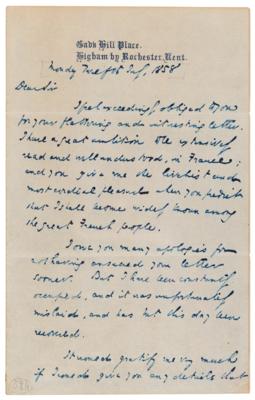 Gad's Hill Place.
Higham by Rochester, Kent.
Monday Twelfth July, 1858
Dear Sir
I feel exceedingly obliged to you
for your flattering and interesting letter.
I have a great ambition to be extensively
read and well understood, in France;
and you give me the liveliest and
most cordial pleasure when you predict
that I shall become widely known among
the great French people.
I owe you many apologies for
not having answered your letter
sooner. But I have been constantly
occupied, and it was unfortunately
mislaid, and has but this day been
recovered.
It would gratify me very much
if I could give you any details that